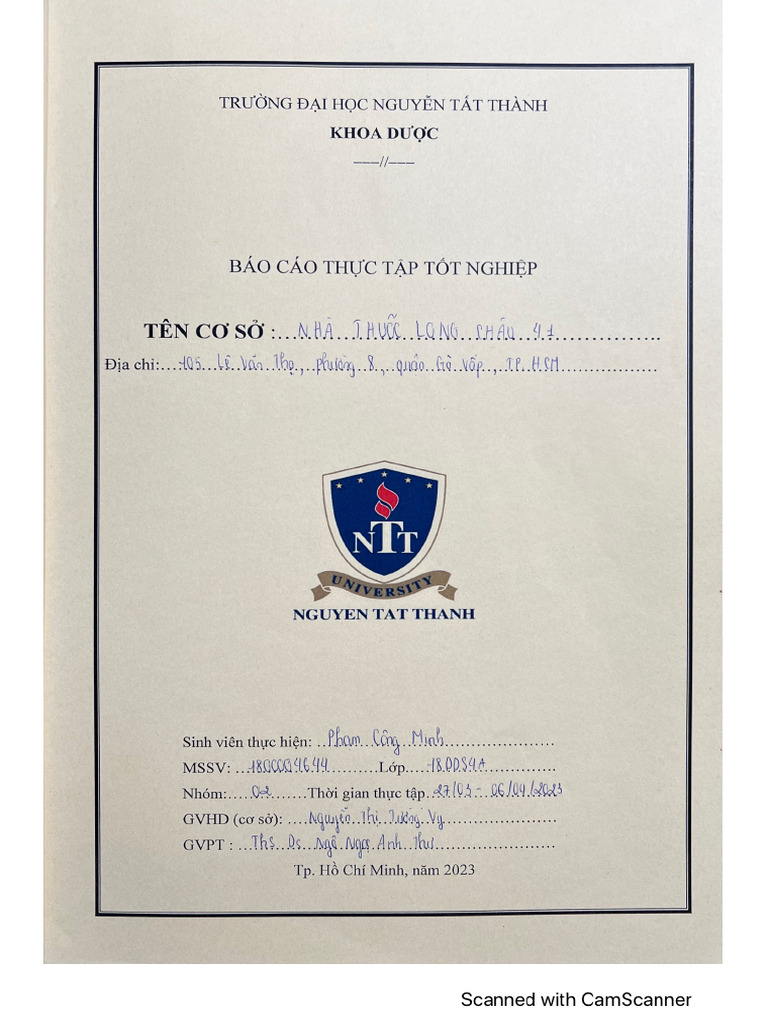 TRƯỜNG ĐẠI HỌC NGUYỄN TẤT THÀNH
KHOA DƯỢC
-----//-----
BÁO CÁO THỰC TẬP TỐT NGHIỆP
TÊN CƠ SỞ :....NHÀ THUỐC LONG CHÂU 41................
Địa chỉ:....105 Lê Văn Thọ, phường 8, quận Gò Vấp, TP. HCM................
NTT
UNIVERSITY
NGUYEN TAT THANH
Sinh viên thực hiện: ...Phạm Công Minh......................
MSSV: ..1800004644..........Lớp....18DDS4A..............
Nhóm:.....02.......Thời gian thực tập..27/03 - 06/04/2023
GVHD (cơ sở): ....Nguyễn Thị Tường Vy......................
GVPT : ...ThS. Ds. Ngô Ngọc Anh Thư........................
Tp. Hồ Chí Minh, năm 2023
Scanned with CamScanner